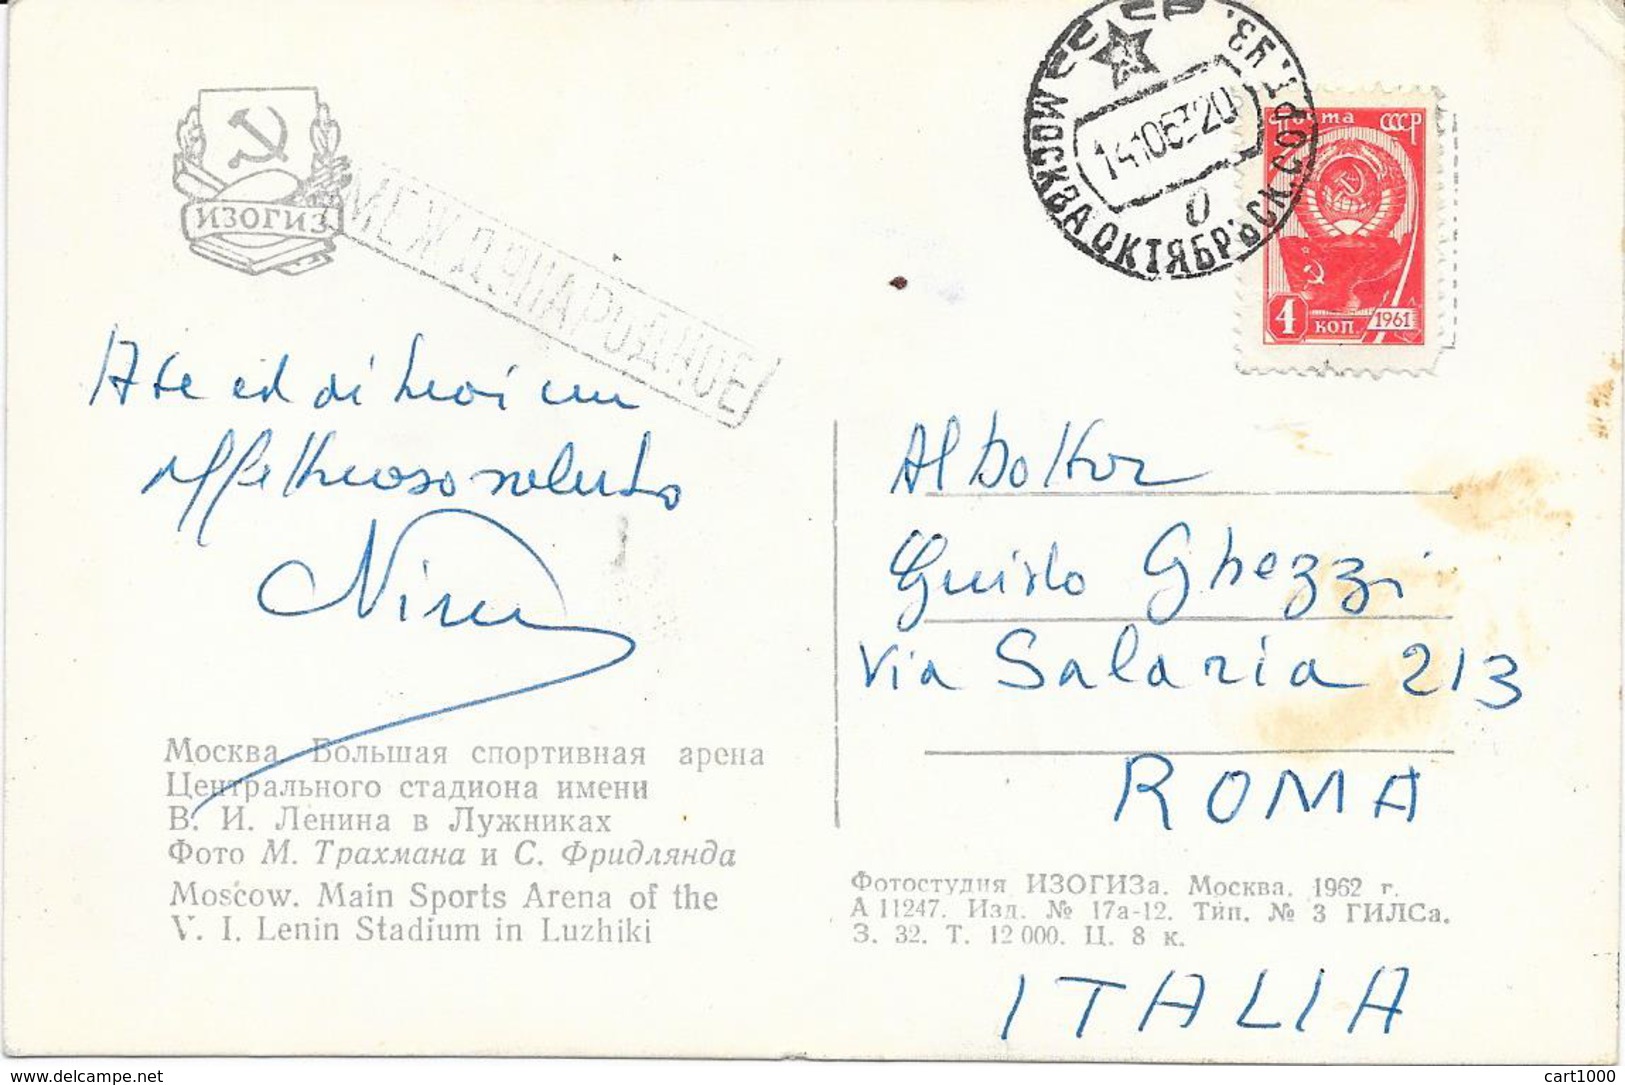 ИЗОГИЗ
МЕЖДУНАРОДНОЕ
МОСКВА ОКТЯБРЬСК. СОРТ. УЗ.
141063 20
почта СССР
4 коп 1961
A te ed ai tuoi un
affettuoso saluto
Nino
Al Dottor
Guido Ghezzi
Via Salaria 213
ROMA
ITALIA
Москва. Большая спортивная арена
Центрального стадиона имени
В. И. Ленина в Лужниках
Фото М. Трахмана и С. Фридлянда
Moscow. Main Sports Arena of the
V. I. Lenin Stadium in Luzhiki
Фотостудия ИЗОГИЗа. Москва. 1962 г.
А 11247. Изд. № 17а-12. Тип. № 3 ГИЛСа.
З. 32. Т. 12 000. Ц. 8 к.
www.delcampe.net
cart1000